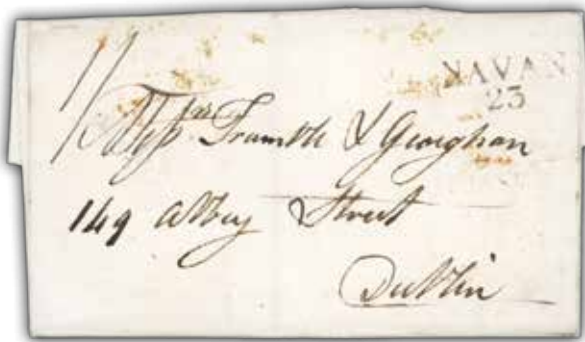 NAVAN
23
1/
Messrs Trumble & Geoghan
149 Abbey Street
Dublin